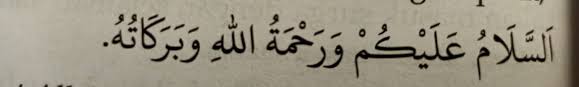 اَلسَّلَامُ عَلَيْكُمْ وَرَحْمَةُ اللهِ وَبَرَكَاتُهُ.